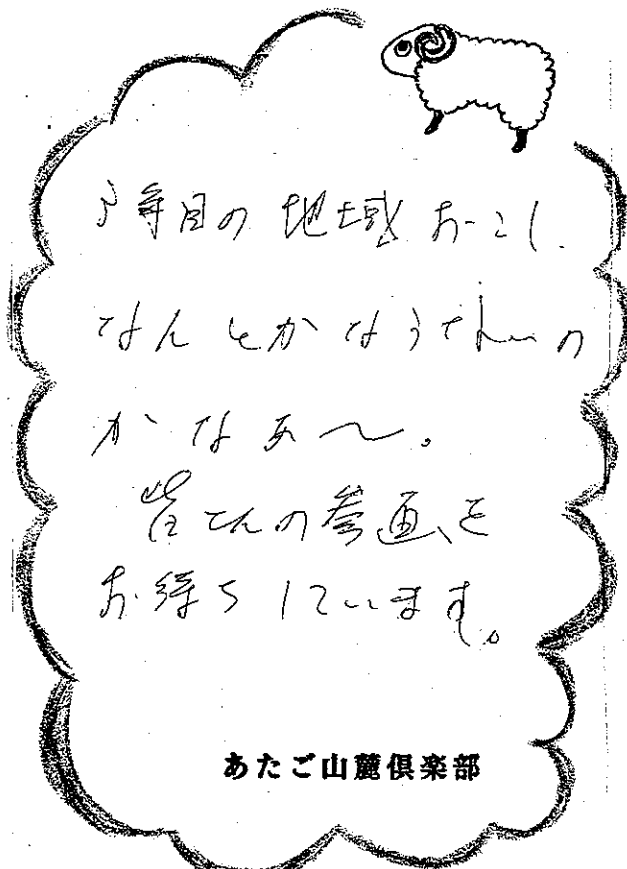 年目の地域おこし、
なんとかなら
かなあ〜。
皆さんの参画を
お待ちしています。
あたご山麓倶楽部